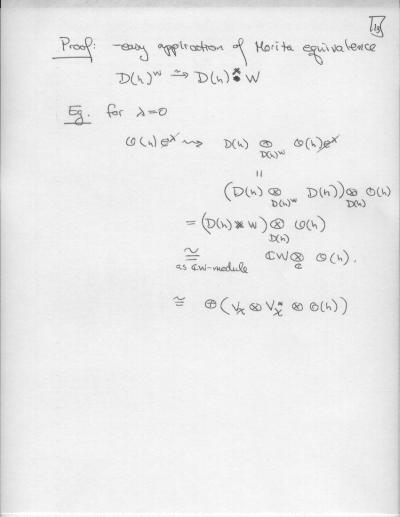 19
Proof: -easy application of Morita equivalence
D(h)^W ~→ D(h) * W
Eg. for λ=0
O(h) e^λ ⇝ D(h) ⊗_{D(h)^W} O(h) e^λ
=
(D(h) ⊗_{D(h)^W} D(h)) ⊗_{D(h)} O(h)
= (D(h) * W) ⊗_{D(h)} O(h)
≅ as ℂW-module ℂW ⊗_ℂ O(h).
≅ ⊕ (V_χ ⊗ V_χ^* ⊗ O(h))